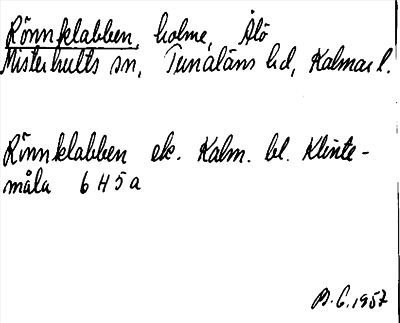 Rönnklabben, holme, Ålö
Misterhults sn, Tunaläns hd, Kalmar l.
Rönnklabben ek. Kalm. bl. Klinte-
måla 6 H 5 a
B. G. 1957